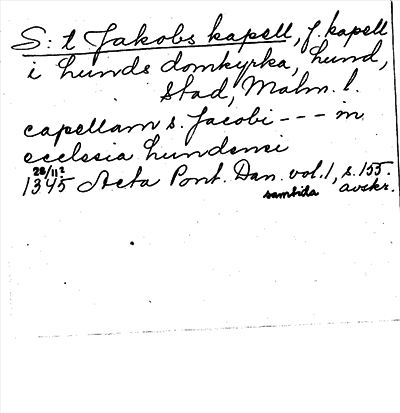 S: t Jakobs kapell, f. kapell
i Lunds domkyrka, Lund,
stad, Malm. l.
capellam s. Jacobi --- in
ecclesia Lundensi
28/11 2
1345 Acta Pont. Dan. vol. 1, s. 155.
samtida avskr.